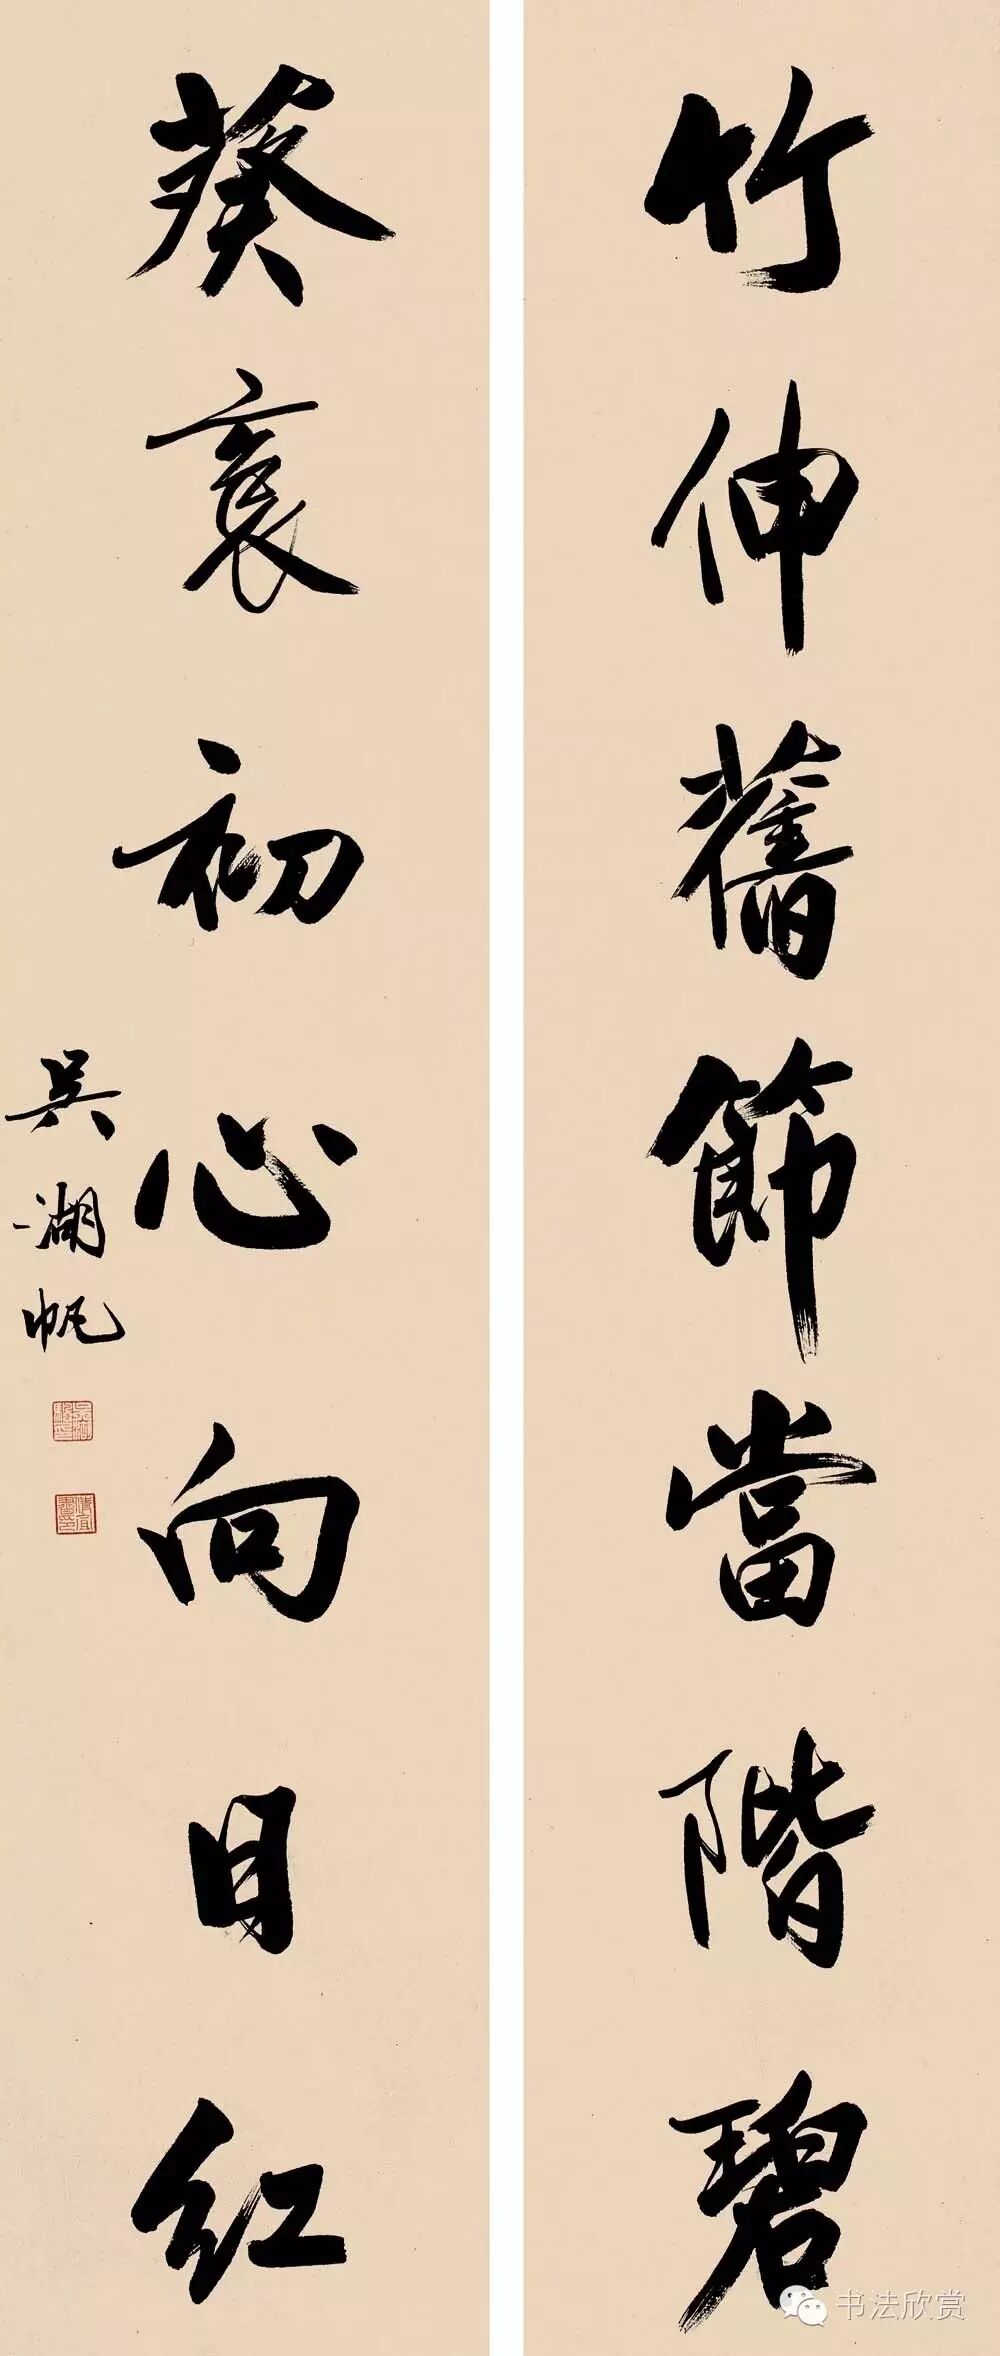 竹伸舊節當階碧
葵初心向日红
吳湖帆
书法欣赏